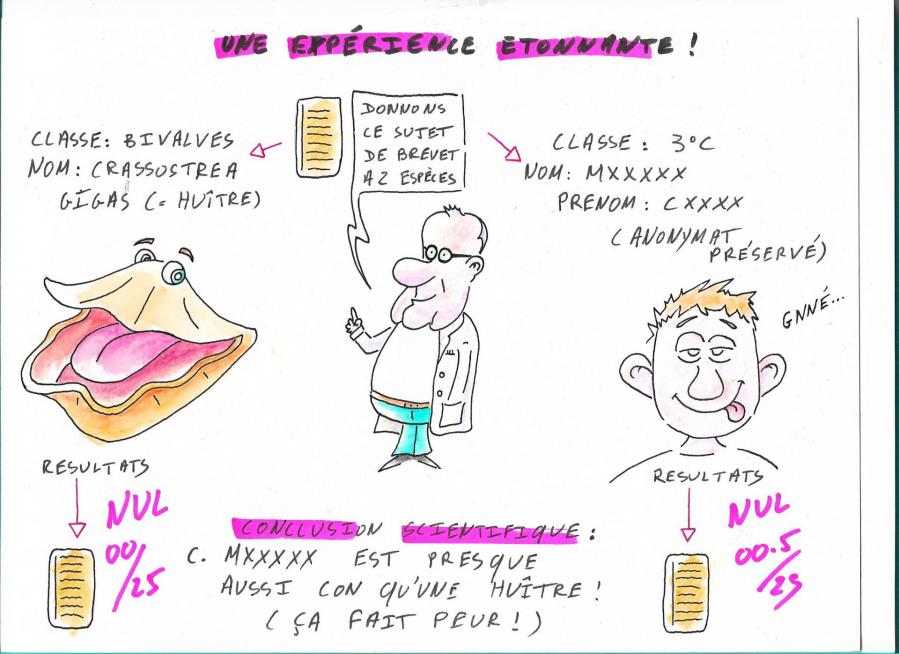 UNE EXPÉRIENCE ETONNANTE !
DONNONS
CE SUJET
DE BREVET
A 2 ESPÈCES
CLASSE: BIVALVES
NOM: CRASSOSTREA
GIGAS (= HUÎTRE)
CLASSE : 3°C
NOM: MXXXXX
PRENOM: CXXXX
(ANONYMAT
PRÉSERVÉ)
GNNÉ...
RESULTATS
NUL
00/25
RESULTATS
NUL
00.5/25
CONCLUSION SCIENTIFIQUE :
C. MXXXXX EST PRESQUE
AUSSI CON QU'UNE HUÎTRE !
( ÇA FAIT PEUR ! )